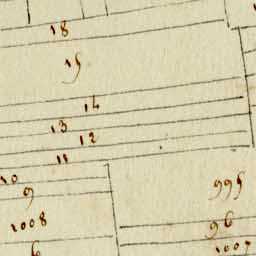 18
15
14
13
12
11
10
9
995
1008
96
1007
6